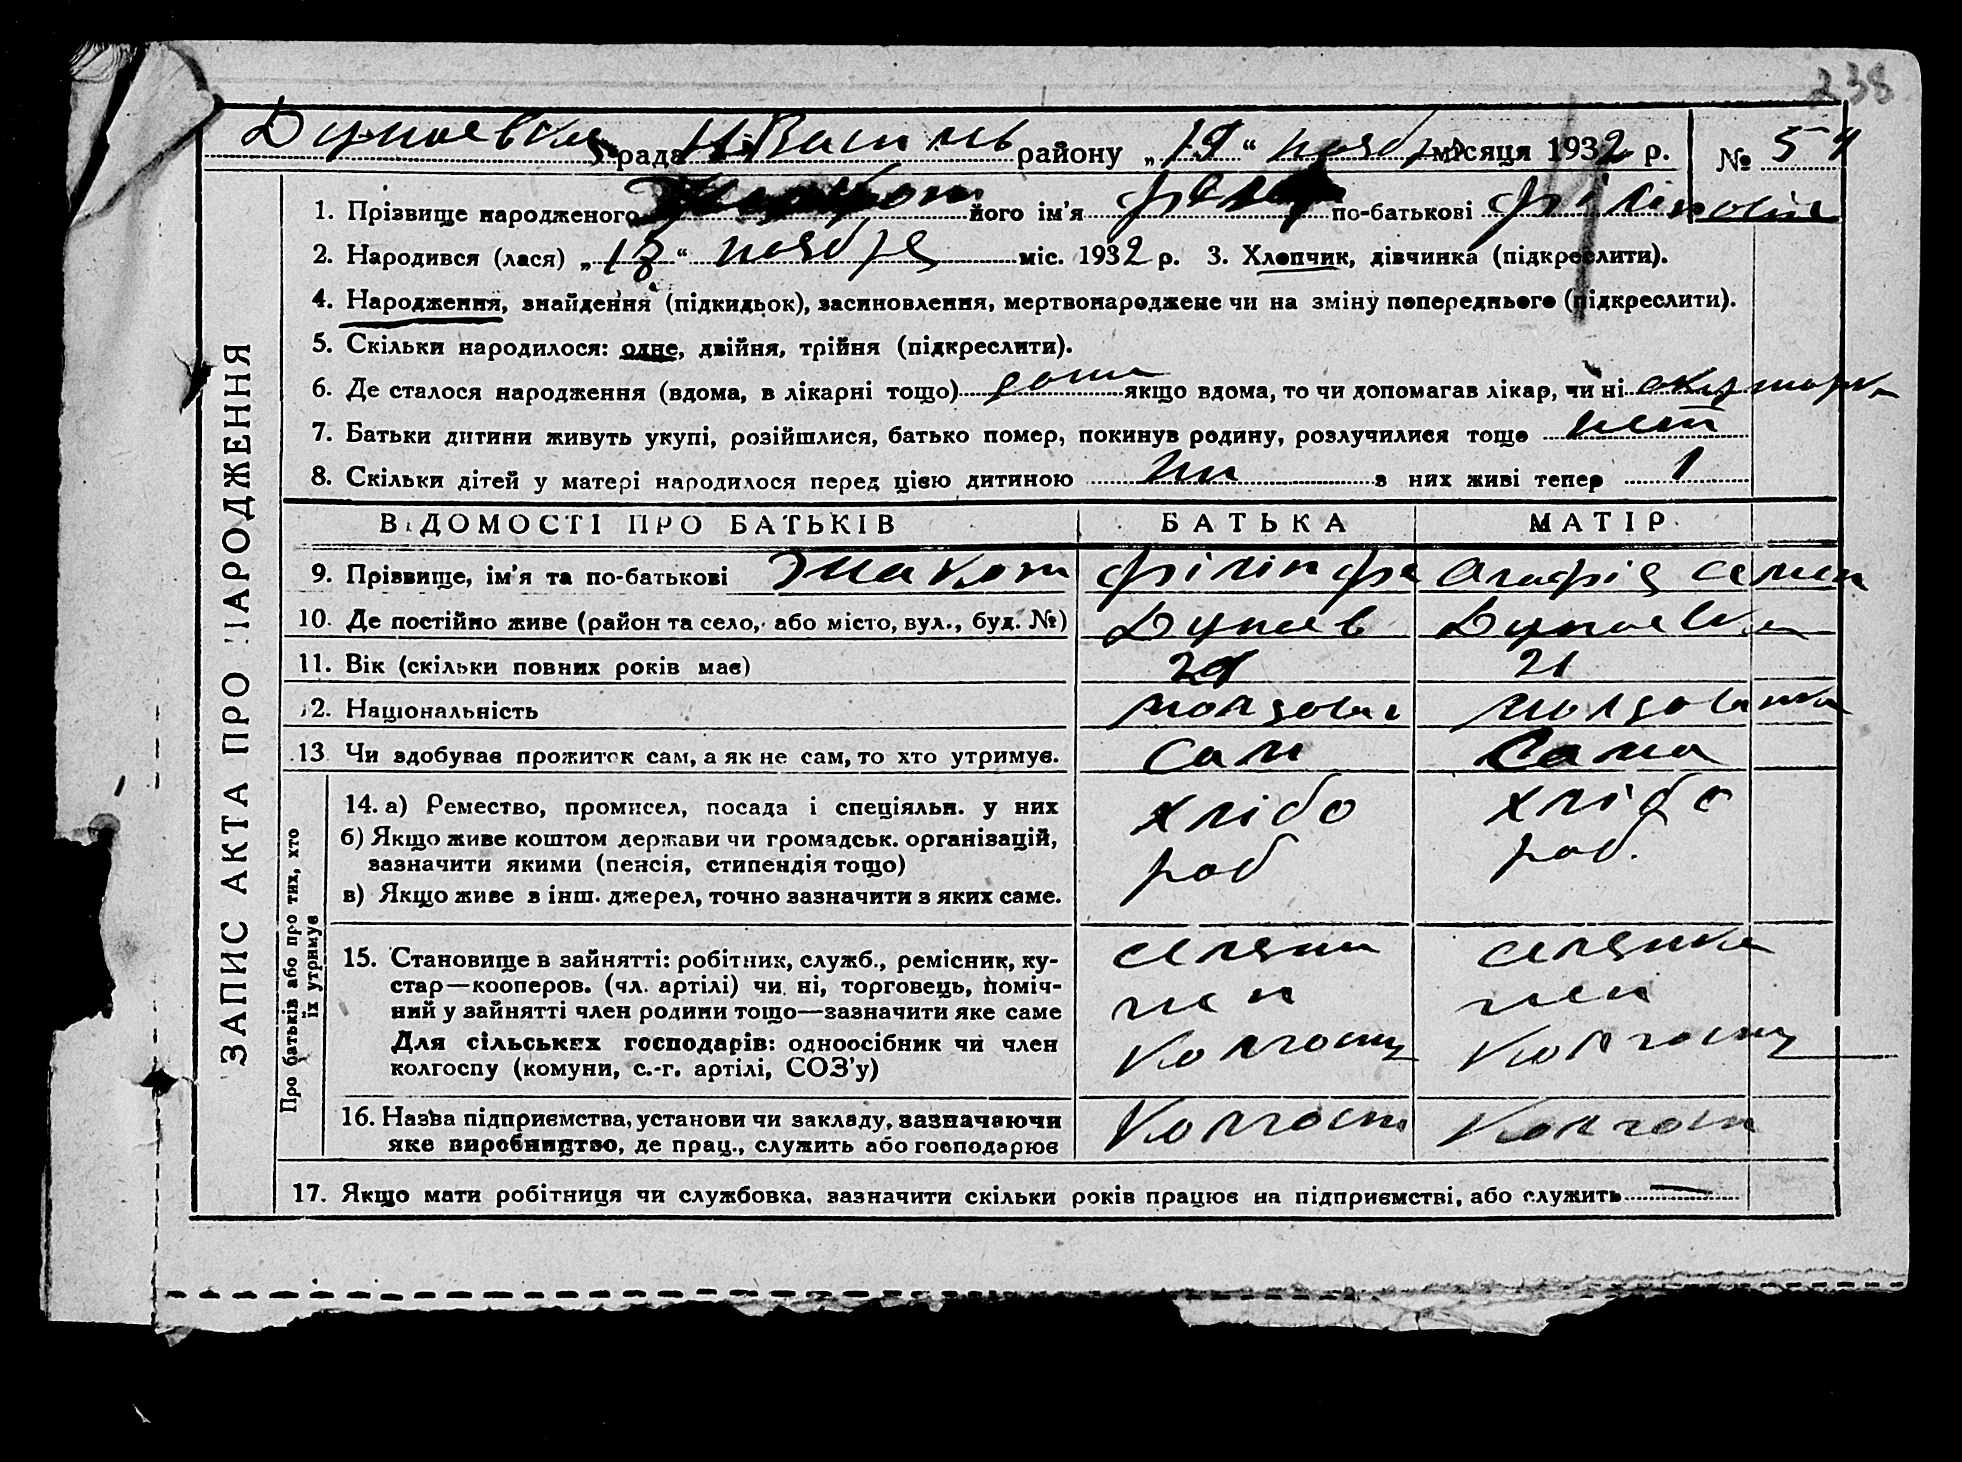 238
Дунаевская рада Н Василів району „19“ ноября місяця 1932 р. № 54
1. Прізвище народженого його ім'я по-батькові філіпович
2. Народився (лася) „18“ ноября міс. 1932 р. 3. Хлопчик, дівчинка (підкреслити).
4. Народження, знайдення (підкидьок), засиновлення, мертвонароджене чи на зміну попереднього (підкреслити).
5. Скільки народилося: одне, двійня, трійня (підкреслити).
6. Де сталося народження (вдома, в лікарні тощо) дома якщо вдома, то чи допомагав лікар, чи ні акушорка
7. Батьки дитини живуть укупі, розійшлися, батько помер, покинув родину, розлучилися тощо нет
8. Скільки дітей у матері народилося перед цією дитиною з них живі тепер 1
ЗАПИС АКТА ПРО НАРОДЖЕННЯ
ВІДОМОСТІ ПРО БАТЬКІВ БАТЬКА МАТІР
9. Прізвище, ім'я та по-батькові Знакот філіп Агафія семен
10. Де постійно живе (район та село, або місто, вул., буд. №) Дунаев Дунаевка
11. Вік (скільки повних років має) 21
12. Національність молдован молдованка
13 Чи здобуває прожиток сам, а як не сам, то хто утримує. сам сама
Про батьків або про тих, хто їх утримує
14. а) Ремество, промисел, посада і спеціяльн. у них хлібороб хлібороб.
б) Якщо живе коштом держави чи громадськ. організацій,
зазначити якими (пенсія, стипендія тощо)
в) Якщо живе з інш. джерел, точно зазначити з яких саме.
15. Становище в зайнятті: робітник, служб., ремісник, ку- селянин селянка
стар—кооперов. (чл. артілі) чи ні, торговець, поміч- член член
ний у зайнятті член родини тощо—зазначити яке саме
Для сільських господарів: одноосібник чи член колгоспу колгоспу
колгоспу (комуни, с.-г. артілі, СОЗ'у)
16. Назва підприємства, установи чи закладу, зазначаючи колгосп колгосп
яке виробництво, де прац., служить або господарює
17. Якщо мати робітниця чи службовка, зазначити скільки років працює на підприємстві, або служить —